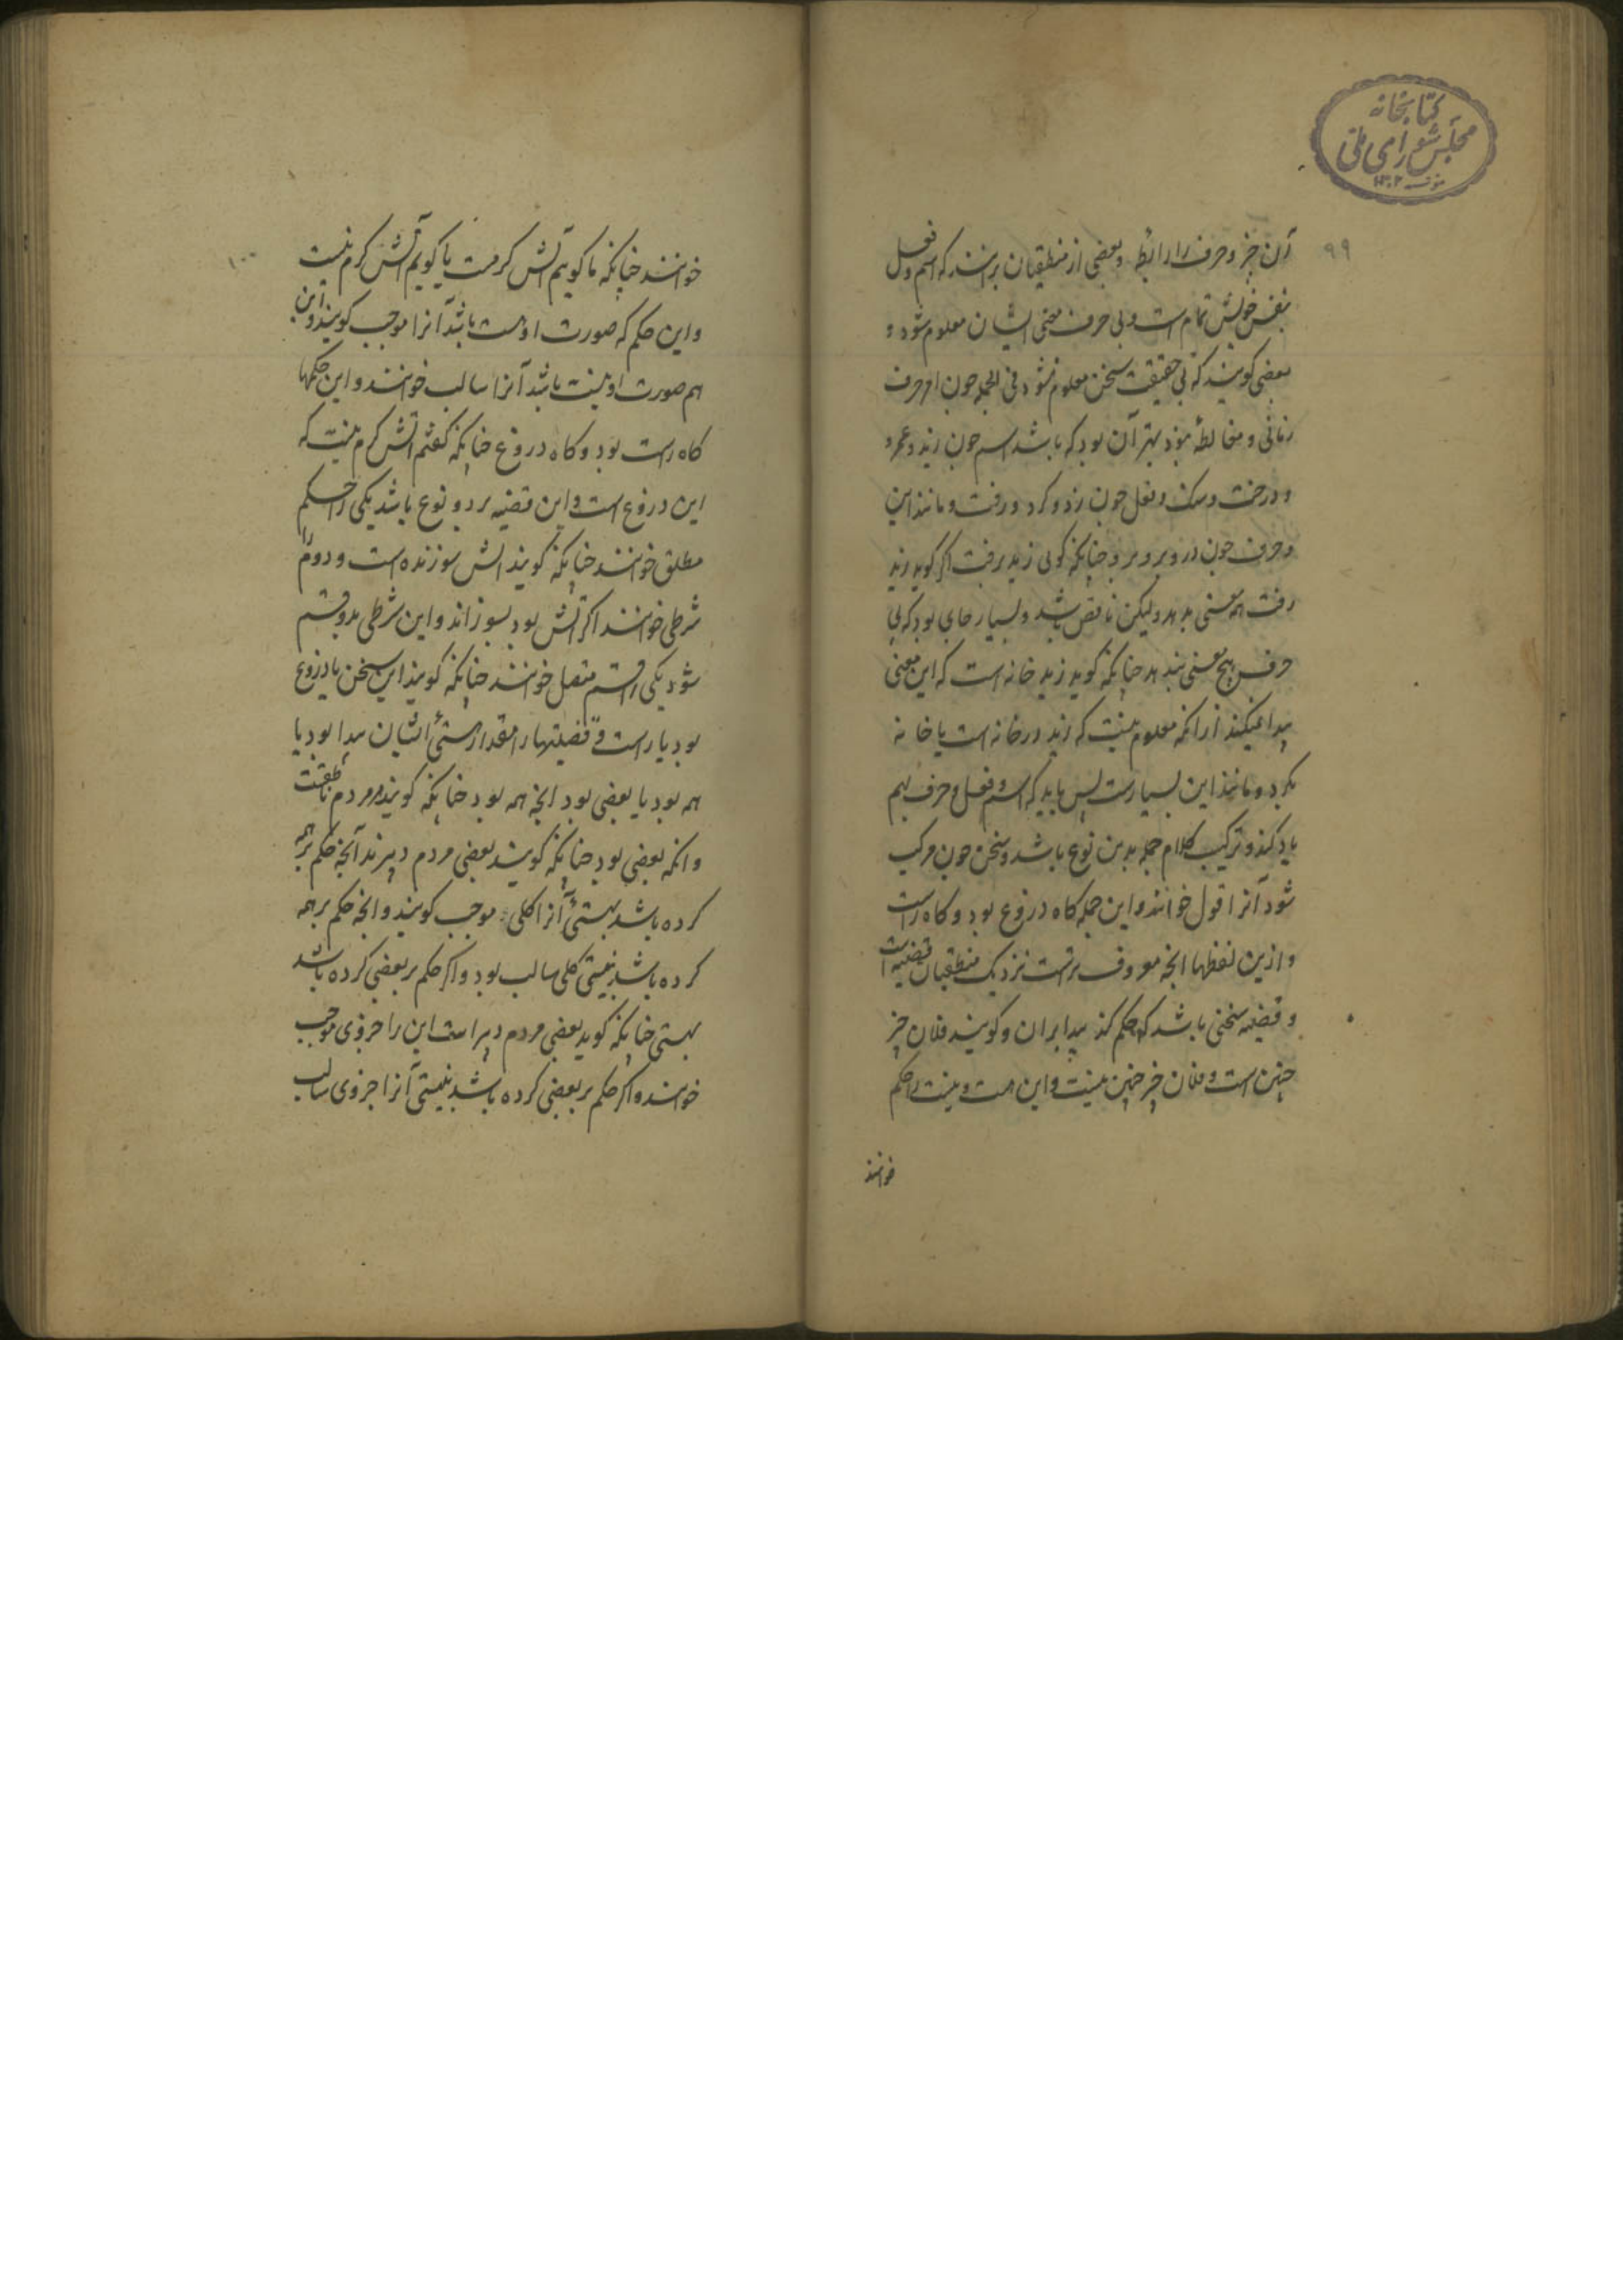 کتابخانه
مجلس شورای ملی
۹۹
آن خبر و حرف را رابطه و بعضی از منطقیان برانند که اسم و فعل
بنفس خویش تمام است و بی حرف معنی ایشان معلوم شود و
بعضی کویند که بی حقیقت سخن معلوم نشود فی الجمله چون از حرف
زمانی و مخالطه نبود بهتر آن بود که باشد اسم چون زید و عمرو
و درخت و سنک و فعل چون زد و کرد و رفت و مانند این
و حرف چون در و بر و جنانکه کوئی زید برفت اکر کوید زید
رفت هم معنی بدهد ولیکن ناقص باشد و بسیار جای بود که بی
حرف هیچ معنی ندهد جنانکه کوید زید خانه است که این معنی
پیدا نمیکند از انکه معلوم نیست که زید در خانه است یا خانه
بکرد و مانند این بسیارست پس باید که اسم و فعل و حرف بهم
یاد کند و ترکیب کلام جمله بدین نوع باشد و سخن چون مرکب
شود آنرا قول خوانند و این جمله کاه دروغ بود و کاه راست
و ازین لفظها انچه معروف ترست نزدیک منطقیان قضیه است
و قضیه سخنی باشد که حکم کند بدا بران و کویند فلان چیز
چنین است و فلان چیز چنین نیست و این هست و نیست را حکم
خوانند
۱۰۰
خوانند جنانکه ما کوییم آتش کرمست یا کوییم آتش کرم نیست
و این حکم که صورت او هست باشد آنرا موجب کویند و این
هم صورت او نیست باشد آنرا سالب خوانند و این حکمها
کاه راست بود و کاه دروغ جنانکه کفتم اتش کرم نیست که
این دروغ است و این قضیه بر دو نوع باشد یکی را حکم
مطلق خوانند جنانکه کویند اتش سوزنده است و دوم را
شرطی خوانند اکر اتش بود بسوزاند و این شرطی بدو قسم
شود یکی را قسم منفصل خوانند جنانکه کویند این سخن یا دروغ
بود یا راست و قضیتها را مقدار هستی ایشان پیدا بود یا
همه بود یا بعضی بود انچه همه بود جنانکه کویند همه مردم ناطقست
و انکه بعضی بود جنانکه کویند بعضی مردم دبیرند آنچه حکم بر همه
کرده باشد بهستی آنرا کلی موجب کویند و انچه حکم بر همه
کرده باشد بنیستی کلی سالب بود و اکر حکم بر بعضی کرده باشد
بهستی جنانکه کوید بعضی مردم دبیر است این را جزوی موجب
خوانند و اکر حکم بر بعضی کرده باشد بنیستی آنرا جزوی سالب